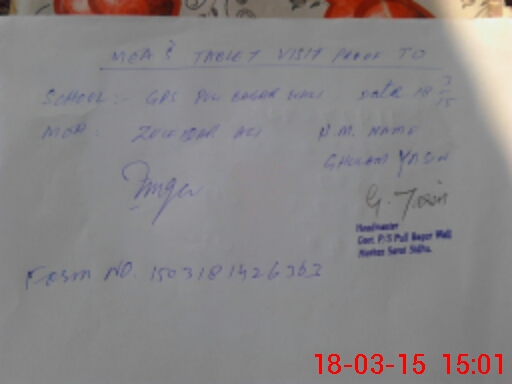 MEA'S TABLET VISIT PROOF TO
SCHOOL:- GPS PUL BAGAR WALI Date 18 3/15
MEA: ZULFIQAR ALI H.M. NAME
GHULAM YASIN
G. Yasin
Headmaster
Govt. P/S Pull Bagar Wali
Markaz Sarai Sidhu.
FORM NO. 150318142636
18-03-15 15:01